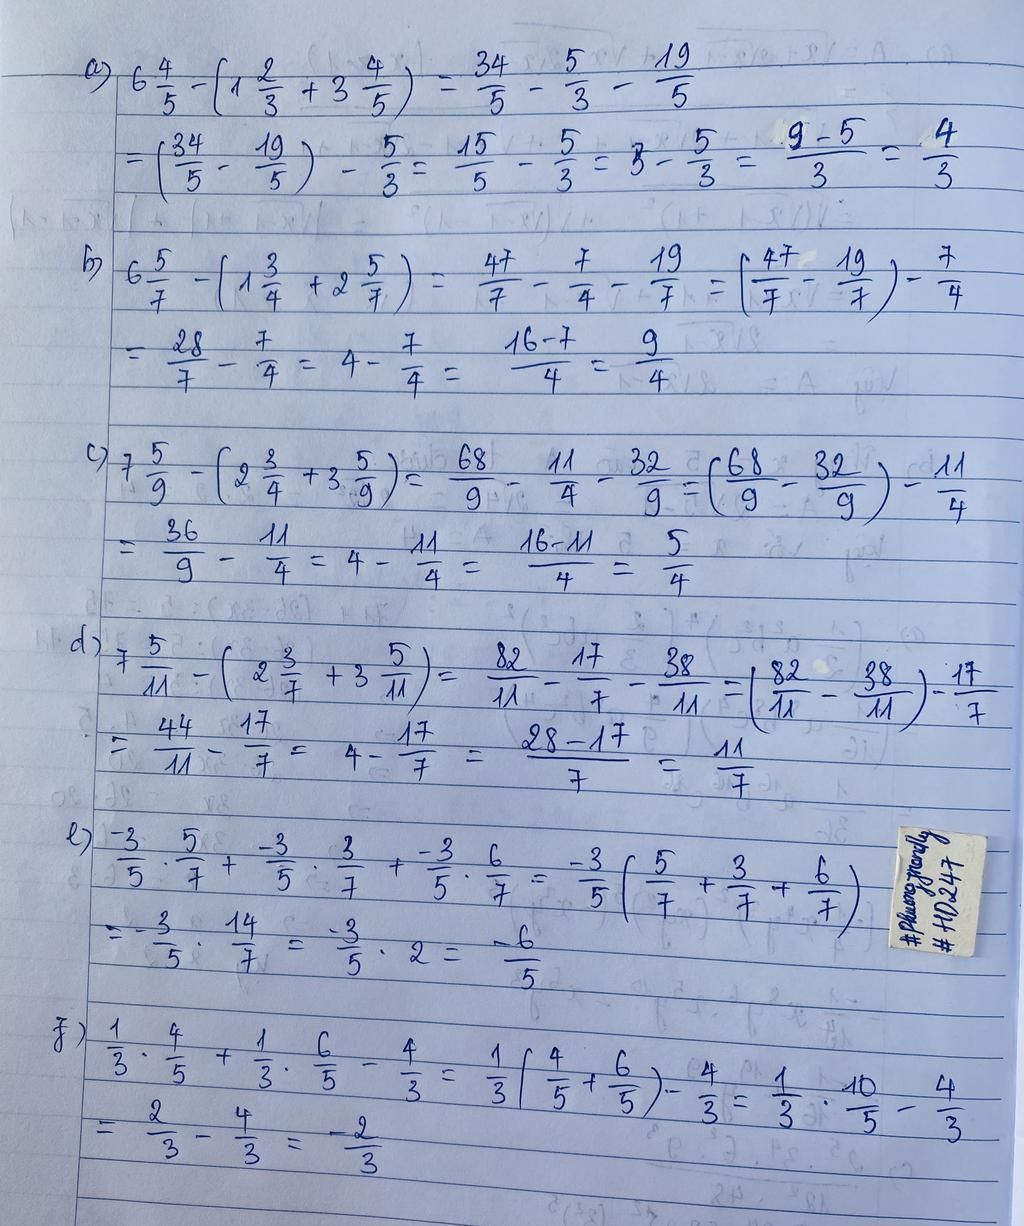 a) 6 4/5 - (1 2/3 + 3 4/5) = 34/5 - 5/3 - 19/5
= (34/5 - 19/5) - 5/3 = 15/5 - 5/3 = 3 - 5/3 = 9-5/3 = 4/3
b) 6 5/7 - (1 3/4 + 2 5/7) = 47/7 - 7/4 - 19/7 = (47/7 - 19/7) - 7/4
= 28/7 - 7/4 = 4 - 7/4 = 16-7/4 = 9/4
c) 7 5/9 - (2 3/4 + 3 5/9) = 68/9 - 11/4 - 32/9 = (68/9 - 32/9) - 11/4
= 36/9 - 11/4 = 4 - 11/4 = 16-11/4 = 5/4
d) 7 5/11 - (2 3/7 + 3 5/11) = 82/11 - 17/7 - 38/11 = (82/11 - 38/11) - 17/7
= 44/11 - 17/7 = 4 - 17/7 = 28-17/7 = 11/7
e) -3/5 . 5/7 + -3/5 . 3/7 + -3/5 . 6/7 = -3/5 (5/7 + 3/7 + 6/7)
= -3/5 . 14/7 = -3/5 . 2 = -6/5
#HD247
f) 1/3 . 4/5 + 1/3 . 6/5 - 4/3 = 1/3 (4/5 + 6/5) - 4/3 = 1/3 . 10/5 - 4/3
= 2/3 - 4/3 = -2/3